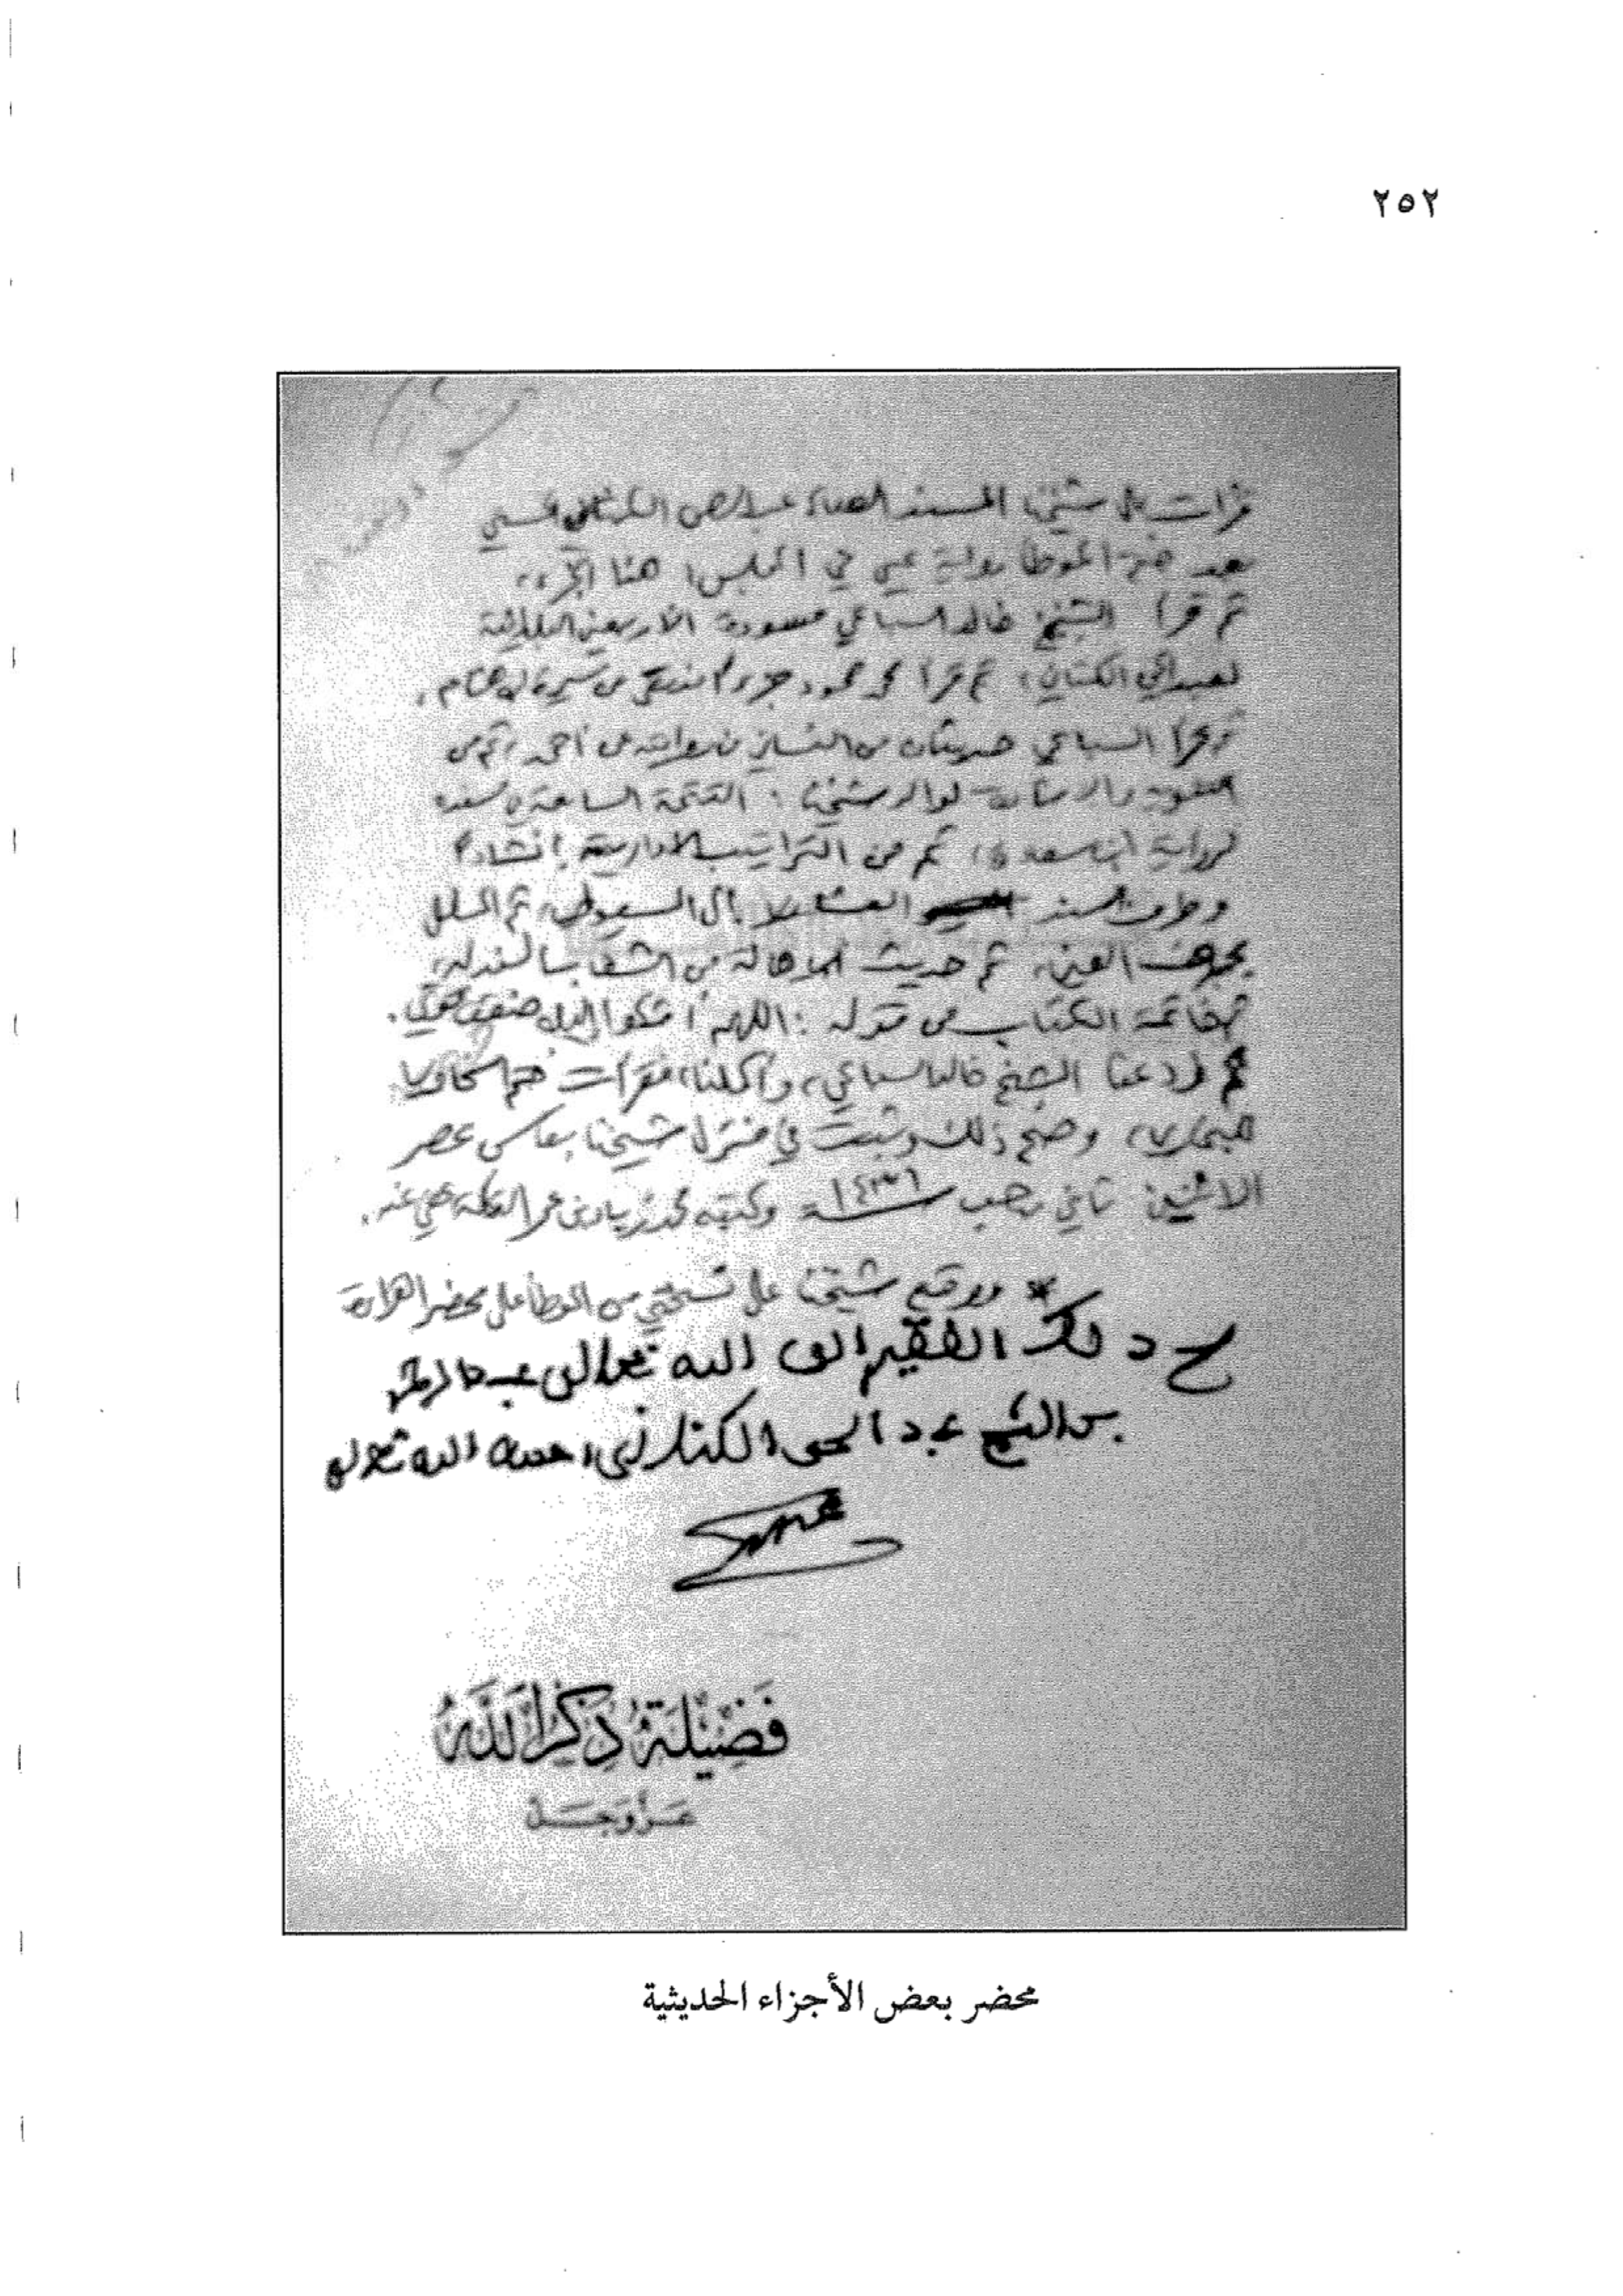 ٢٥٢
قرأت على شيخنا المسند عبد الرحمن الكتاني الحسني
بعد ختم الموطأ رواية يحيى في المجلس هذا الجزء،
ثم قرأ الشيخ خالد السباعي مسودة الأربعين البلدانية
لعبد الحي الكتاني، ثم قرأ محمد محمود جزءا من سيرة ابن هشام،
ثم قرأ السباعي حديثان من
لوالد شيخنا
لرواية ابن سعادة، ثم من التراتيب الإدارية إنشادا
إلى السيوطي، ثم المسلسل
بحرف العين، ثم حديث ابن أبي هالة من الشفا
ثم خاتمة الكتاب من قوله: اللهم أشكو إليك ضعف قوتي.
ثم ودعنا الشيخ خالد السباعي، وأكملنا، فقرأت ختم السخاوي
للبخاري، وصح ذلك وثبت في منزل شيخنا بفاس عصر
الاثنين ثاني رجب سنة ١٤٣٦ وكتبه محمد زياد بن عمر التكلة عفي عنه.
* ووقع شيخنا على نسختي من الموطأ على محضر القراءة
صح ذلك الفقير إلى الله تعالى عبد الرحمن
بن الشيخ عبد الحي الكتاني الله تعالى
فَضِيلَةُ ذِكْرِ اللَّهِ
عَزَّ وَجَلَّ
محضر بعض الأجزاء الحديثية